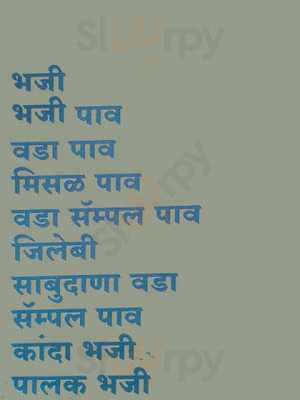 Slurrpy
भजी
भजी पाव
वडा पाव
मिसळ पाव
वडा सॅम्पल पाव
जिलेबी
साबुदाणा वडा
सॅम्पल पाव
कांदा भजी
पालक भजी